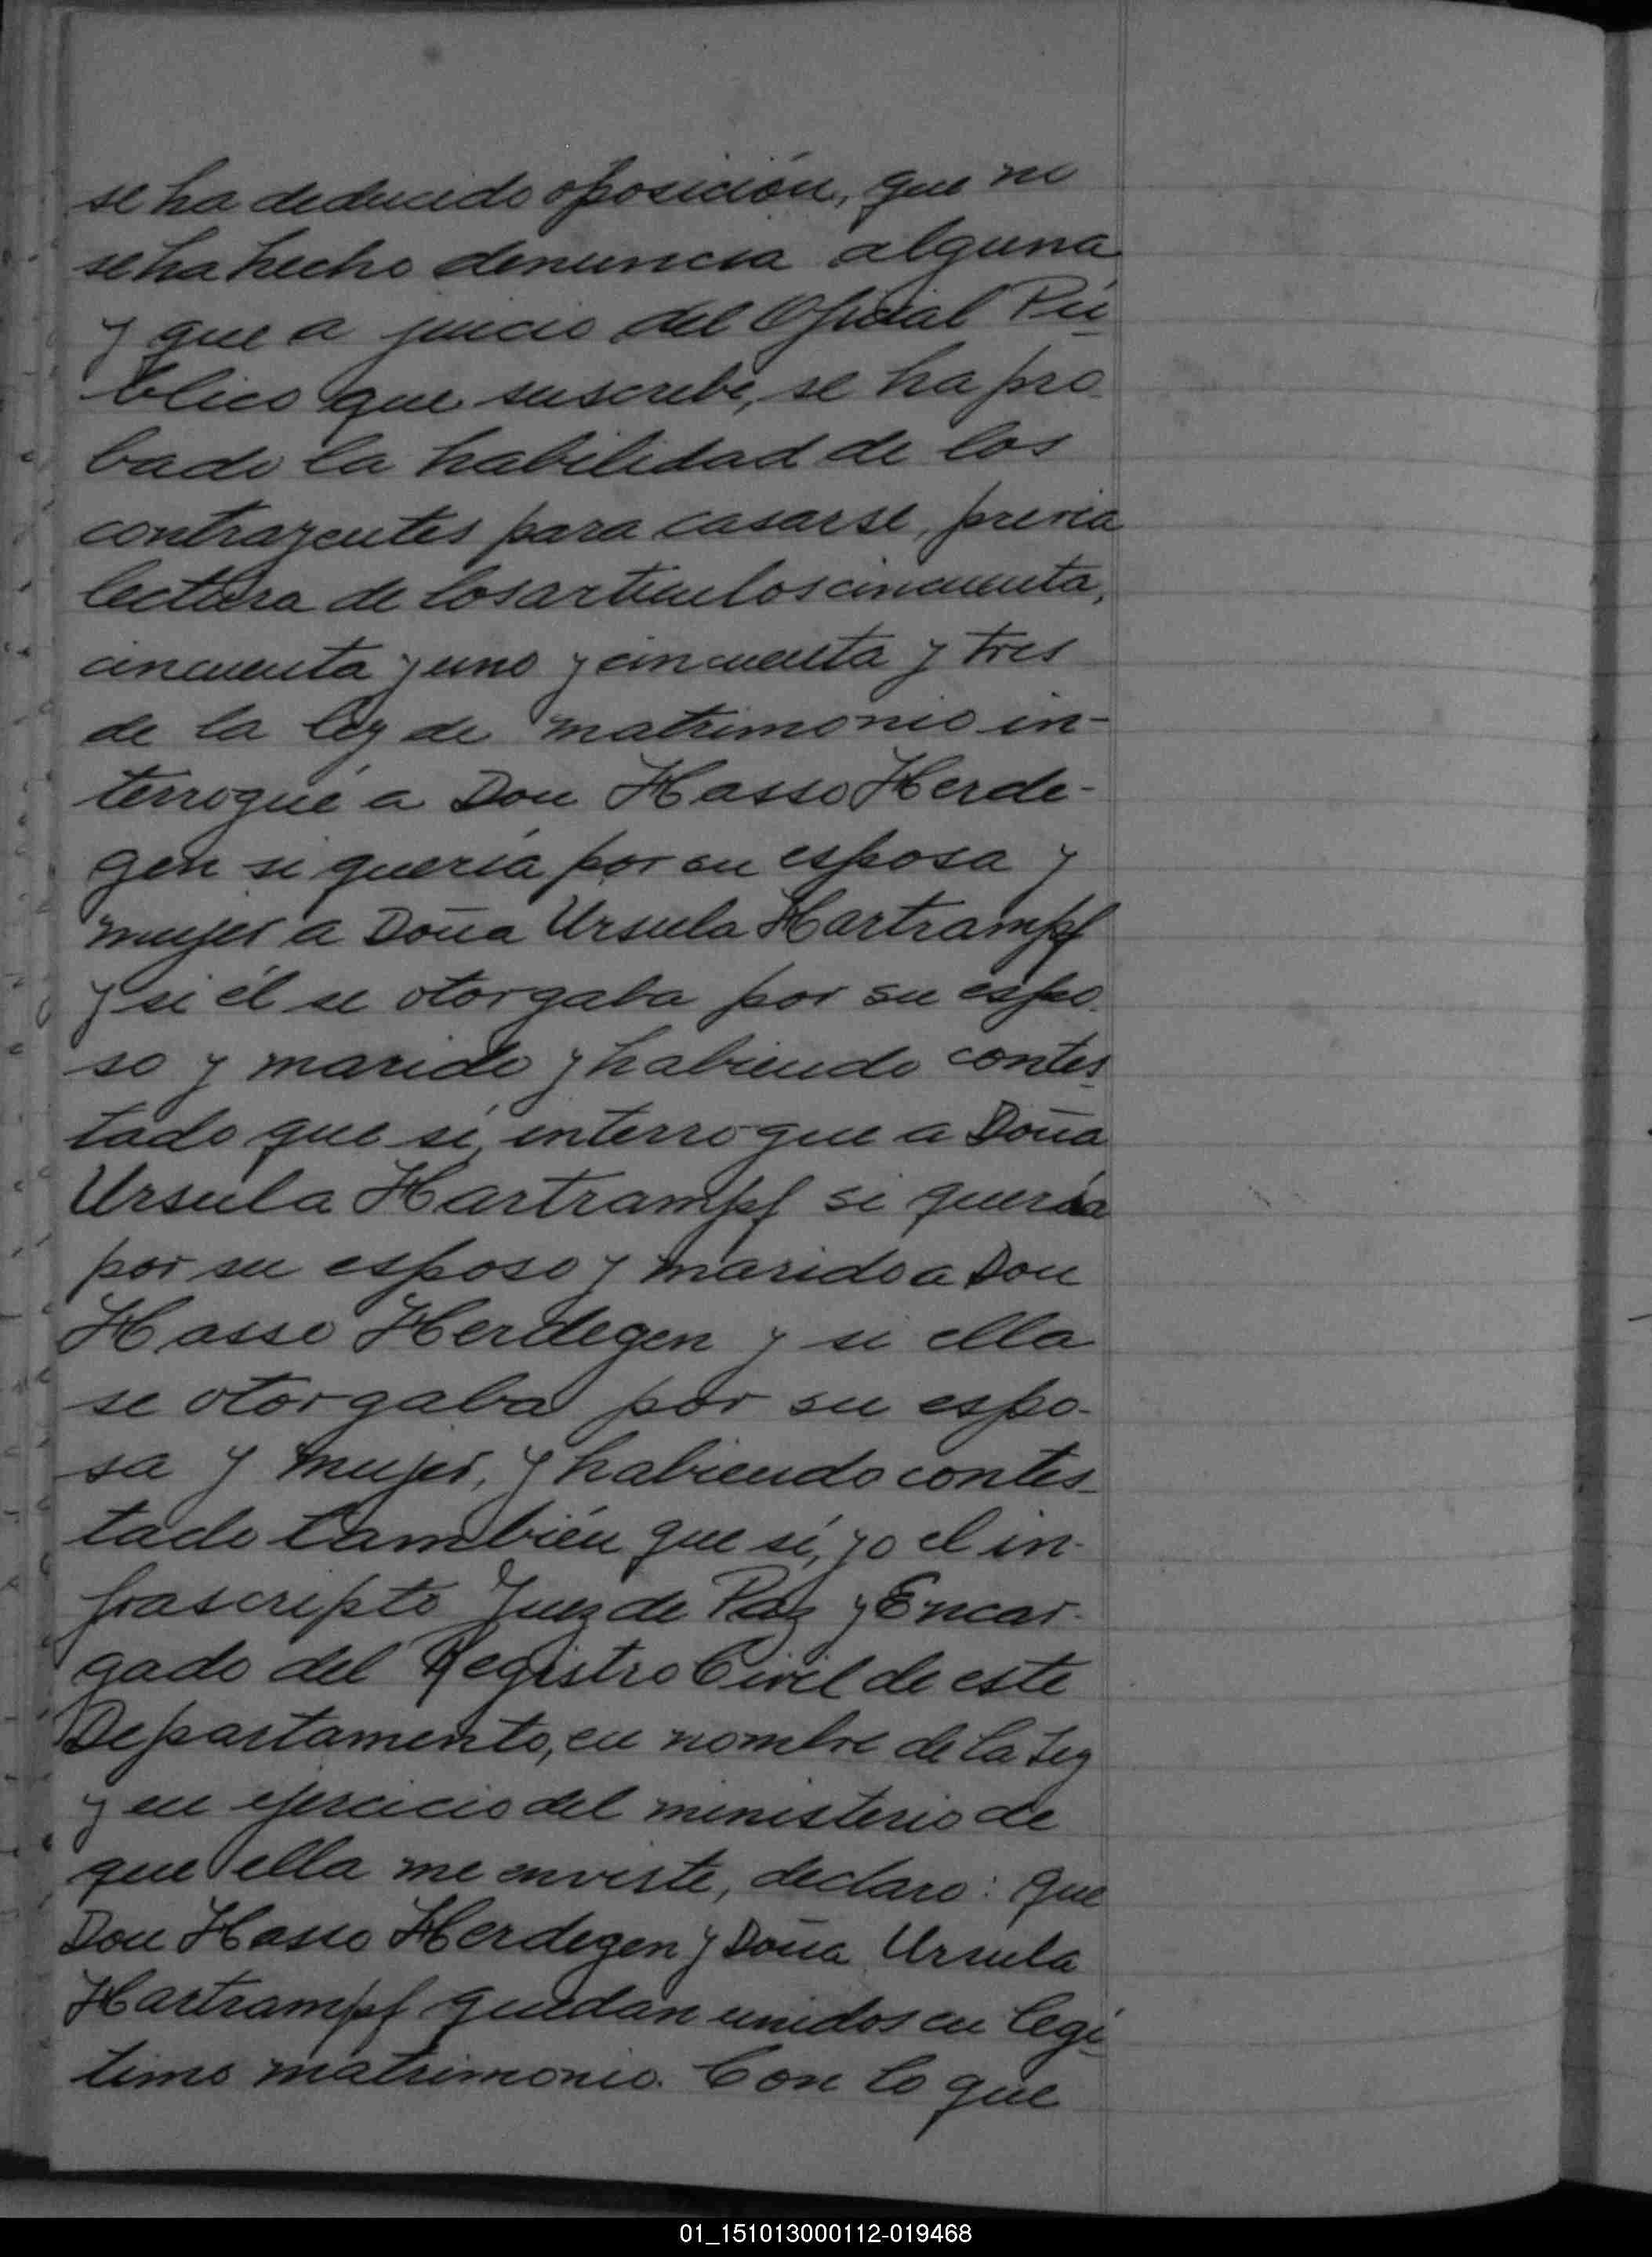 se ha deducido oposición, que no
se ha hecho denuncia alguna
y que a juicio del Oficial Pú-
blico que suscribe, se ha pro-
bado la habilidad de los
contrayentes para casarse, previa
lectura de los artículos cincuenta,
cincuenta y uno y cincuenta y tres
de la ley de matrimonio in-
terrogué a Don Hasso Herde-
gen si quería por su esposa y
mujer a Doña Ursula Hartrampf
y si él se otorgaba por su espo-
so y marido y habiendo contes-
tado que sí, interrogue a Doña
Ursula Hartrampf si quería
por su esposo y marido a Don
Hasso Herdegen y si ella
se otorgaba por su espo-
sa y mujer, y habiendo contes-
tado también que sí, yo el in-
frascripto Juez de Paz y Encar-
gado del Registro Civil de este
Departamento, en nombre de la Ley
y en ejercicio del ministerio de
que ella me inviste, declaro: Que
Don Hasso Herdegen y Doña Ursula
Hartrampf quedan unidos en legí-
timo matrimonio. Con lo que
01_151013000112-019468